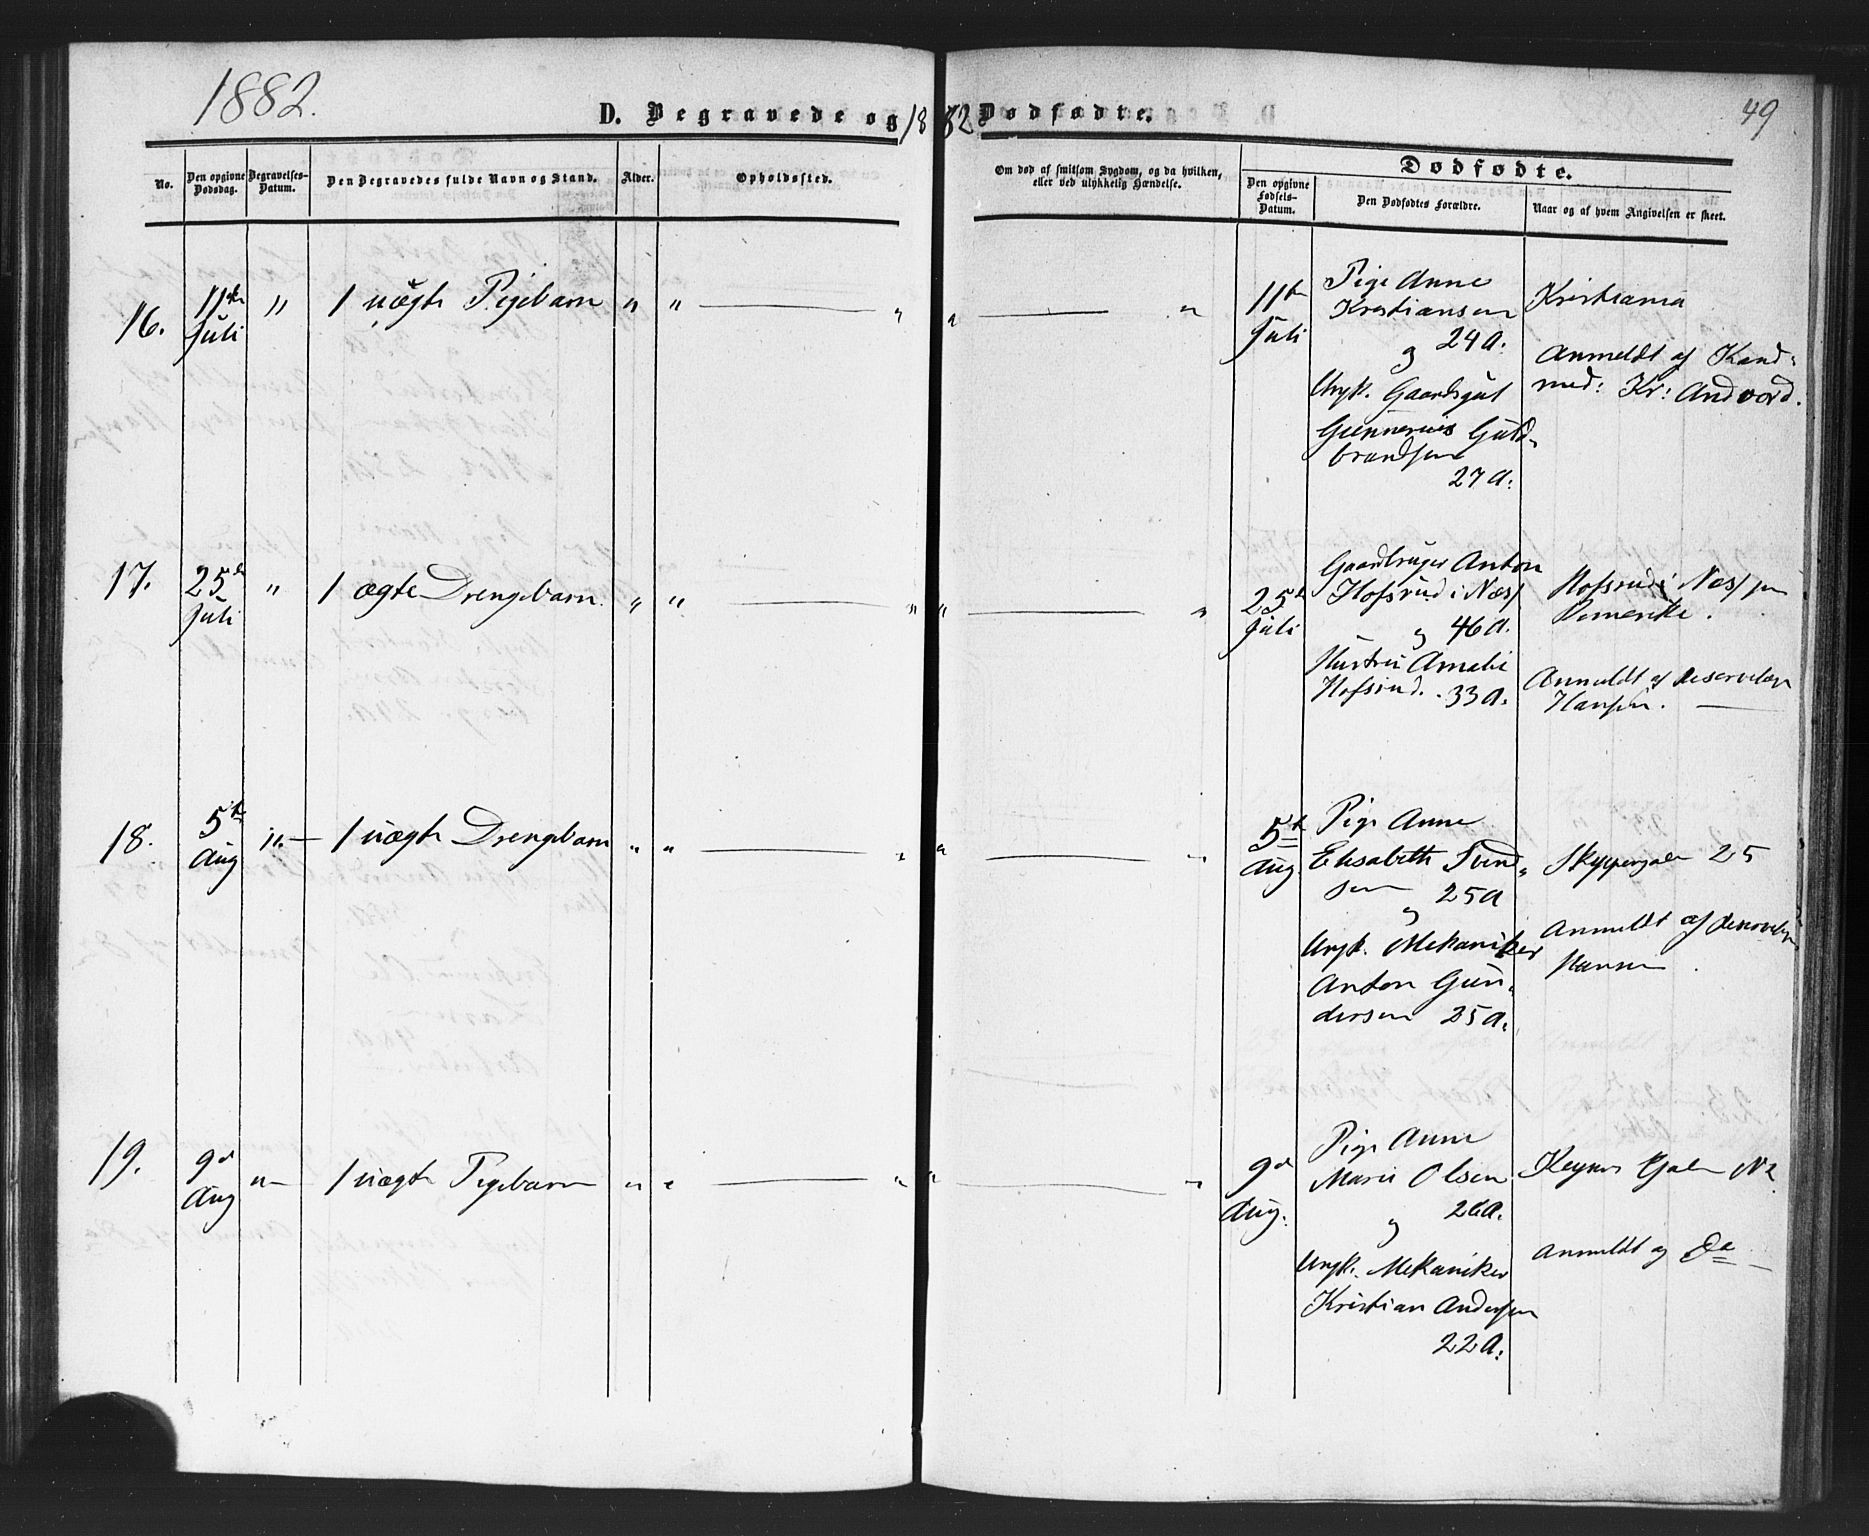 1882.
D. Begravede og
1882
Dødfødte.
49
No.
Den opgivne Dødsdag.
Begravelses-Datum.
Den Begravedes fulde Navn og Stand.
Alder.
Opholdssted.
Om død af smitsom Sygdom, og da hvilken,
eller ved ulykkelig Hændelse.
Dødfødte.
Den opgivne Fødsels-Datum.
Den Dødfødtes Forældre.
Naar og af hvem Angivelsen er skeet.
16.
11te
Juli
"
1 uægte Pigebarn
" " — "
" — "
11te
Juli
Pige Anne
Kristiansen
24 A.
og
Ungk. Gaardsgut
Gunnerius Guld-
brandsen
27 A.
Kristiania
Anmeldt af Kand-
med: Kr: Andvord.
17.
25de
Juli
"
1 ægte Drengebarn.
" " — "
" — "
25de
Juli
Gaardbruger Anton
Hofsrud i Næs
og 46 A.
Hustru Amalie
Hofsrud. 33 A.
Hofsrud i Næs paa
Romerike.
Anmeldt af Reservelæge
Hansen. —
18.
5te
Aug
" —
1 uægte Drengebarn
" " — "
" — "
5te
Aug
Pige Anne
Elisabeth Svend-
sen 25 A
og
Ungk. Mekaniker
Anton Gun-
dersen 25 A.
Skippergaden 25
Anmeldt af Reservelæge
Hansen.
19.
9de
Aug
" —
1 uægte Pigebarn
" " — "
" — "
9de
Aug.
Pige Anne
Marie Olsen
26 A.
og
Ungk. Mekaniker
Kristian Andersen
22 A.
Keysers Gade N 2
Anmeldt af Do —